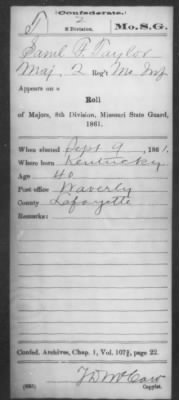 (Confederate.)
T 2 Mo. S. G.
8 Division.
Saml F. Taylor
Maj, 2 Reg't Mo. Inf
Appears on a
Roll
of Majors, 8th Division, Missouri State Guard,
1861.
When elected Sept 9, 1861.
Where born Kentucky
Age 40
Post office Waverly
County Lafayette
Remarks:
Confed. Archives, Chap. 1, Vol. 107½, page 22.
J D McCaw
(635) Copyist.